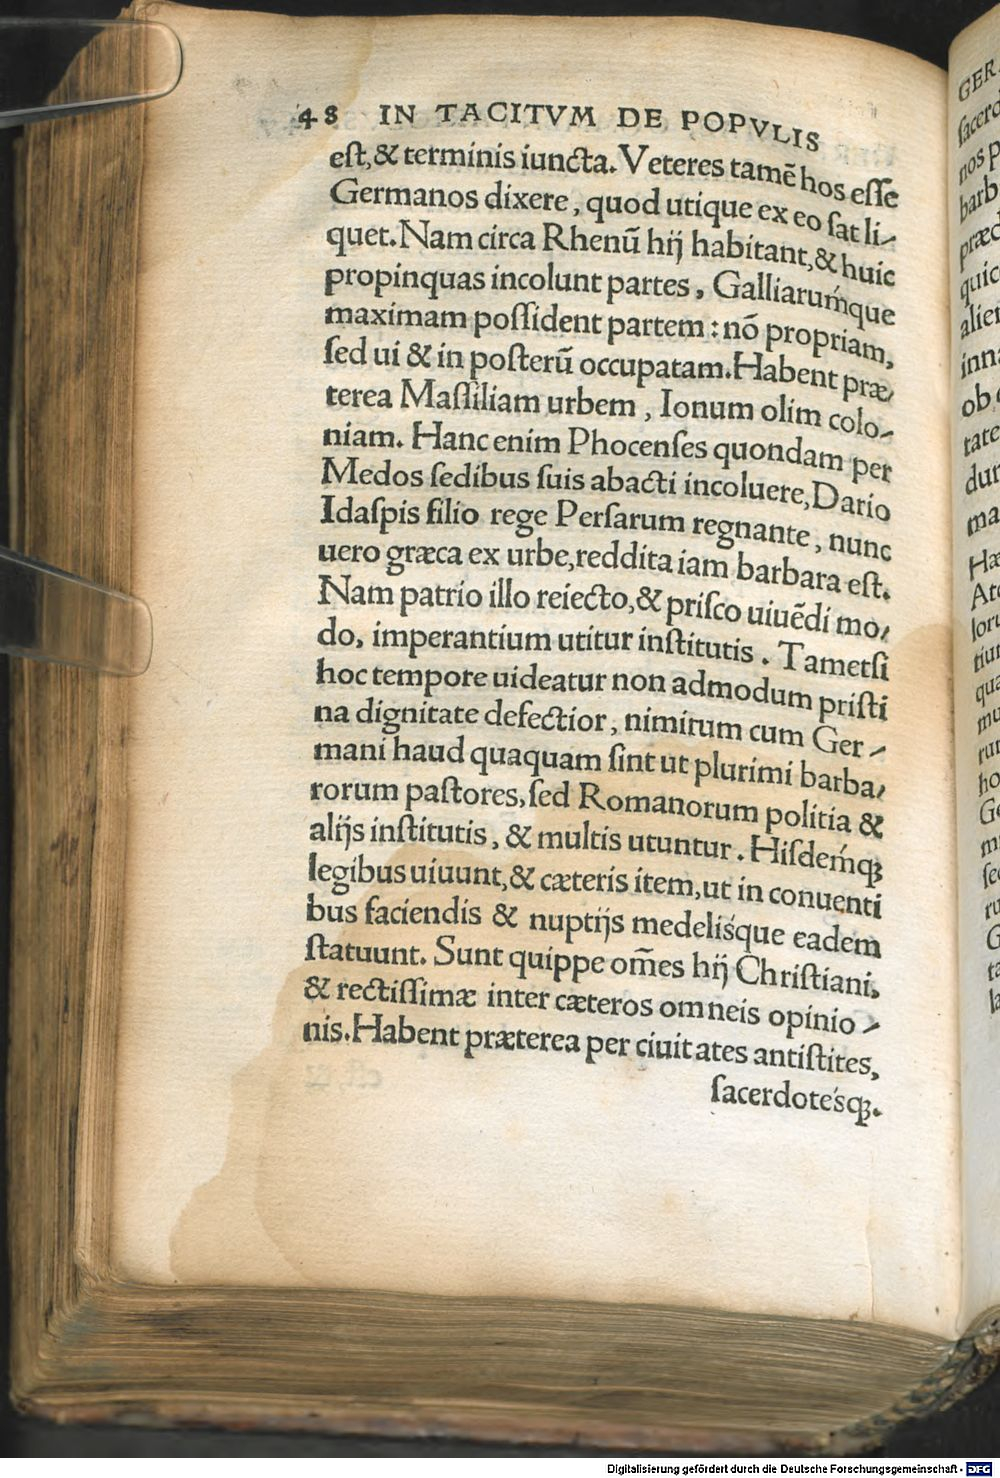 48 IN TACITVM DE POPVLIS
eſt,& terminis iuncta. Veteres tamẽ hos eſſe
Germanos dixere, quod utique ex eo ſat li-
quet. Nam circa Rhenũ hij habitant,& huic
propinquas incolunt partes, Galliarumq́ue
maximam poſſident partem: nõ propriam,
ſed ui & in poſterũ occupatam. Habent præ-
terea Maſſiliam urbem, Ionum olim colo-
niam. Hanc enim Phocenſes quondam per
Medos ſedibus ſuis abacti incoluere, Dario
Idaſpis filio rege Perſarum regnante, nunc
uero græca ex urbe, reddita iam barbara eſt.
Nam patrio illo reiecto,& priſco uiuẽdi mo-
do, imperantium utitur inſtitutis. Tametſi
hoc tempore uideatur non admodum priſti
na dignitate defectior, nimirum cum Ger-
mani haud quaquam ſint ut plurimi barba-
rorum paſtores, ſed Romanorum politia &
alijs inſtitutis, & multis utuntur. Hiſdemq́ꝫ
legibus uiuunt,& cæteris item, ut in conuenti
bus faciendis & nuptijs medelisq́ue eadem
ſtatuunt. Sunt quippe om̃es hij Chriſtiani,
& rectiſſimæ inter cæteros omneis opinio-
nis. Habent præterea per ciuitates antiſtites,
ſacerdotesq́ꝫ.
GER
ſacerd
nos p
barb
præc
quic
alien
inn
ob
tate
dur
ma
Hæ
At
lor
tiu
qua
mu
rur
ho
Ge
m
ſe
ru
G
ta
la
Digitalisierung gefördert durch die Deutsche Forschungsgemeinschaft - DFG